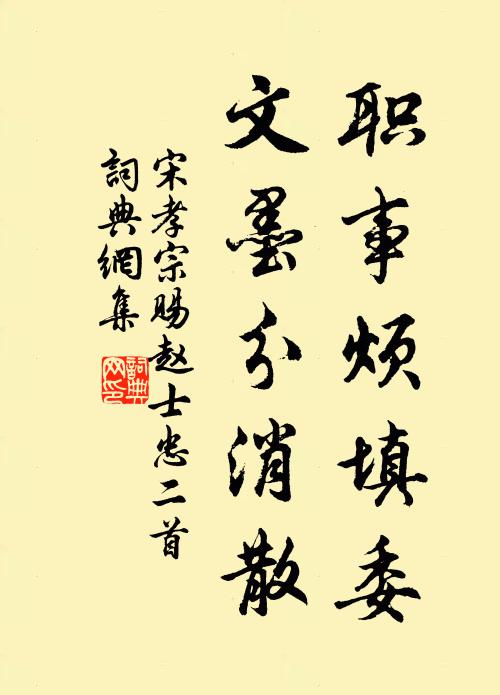 职事烦填委
文墨分消散
宋孝宗赐赵士忠二首
詞典網集
詞典
网印